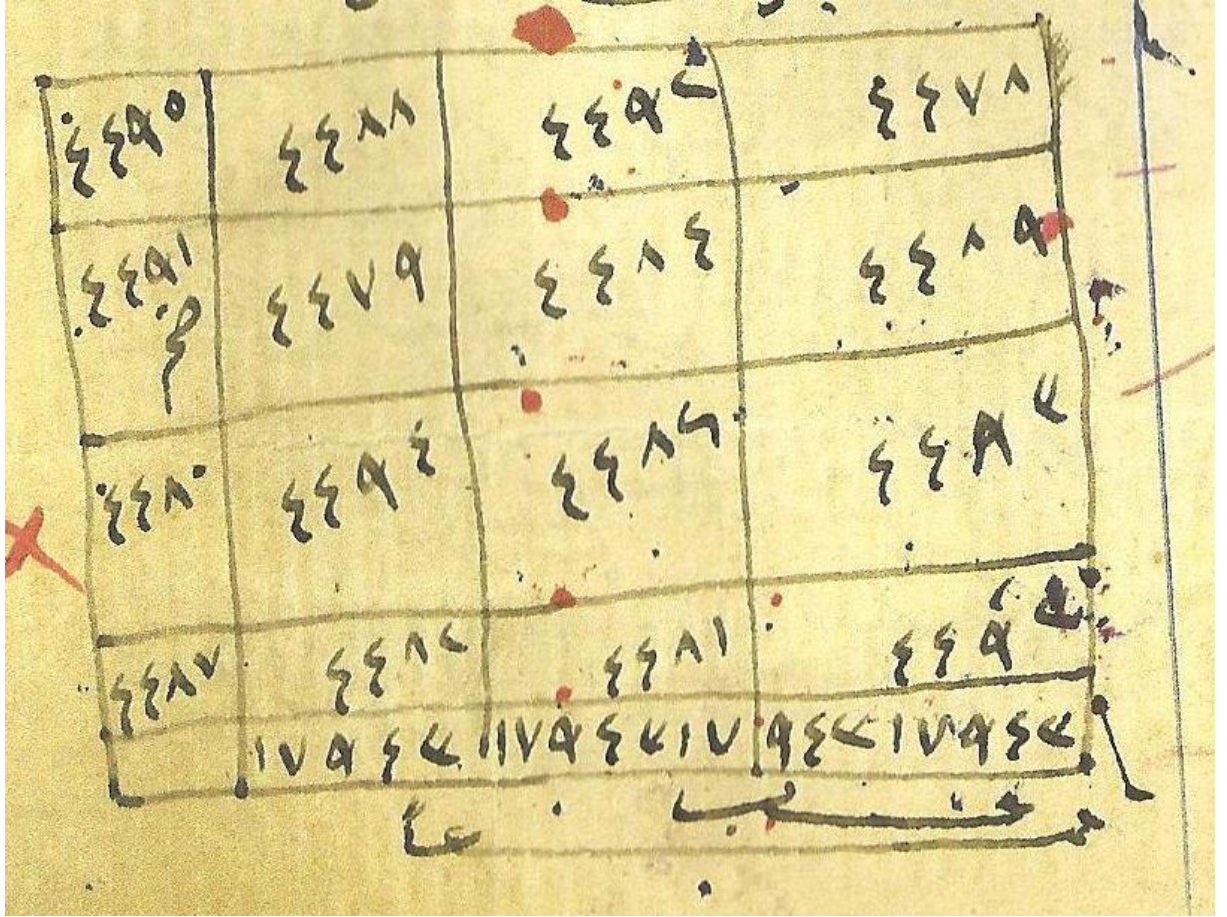 ٤٤٩٥ ٤٤٨٨ ٤٤٩٢ ٤٤٧٨
٤٤٩١ ٤٤٧٩ ٤٤٨٤ ٤٤٨٩
٤٤٨٠ ٤٤٩٤ ٤٤٨٦ ٤٤٩٣
٤٤٨٧ ٤٤٨٢ ٤٤٨١ ٤٤٩٣
١٧٩٤٣ ١٧٩٤٣١٧ ٩٤٣١٧٩٤٣